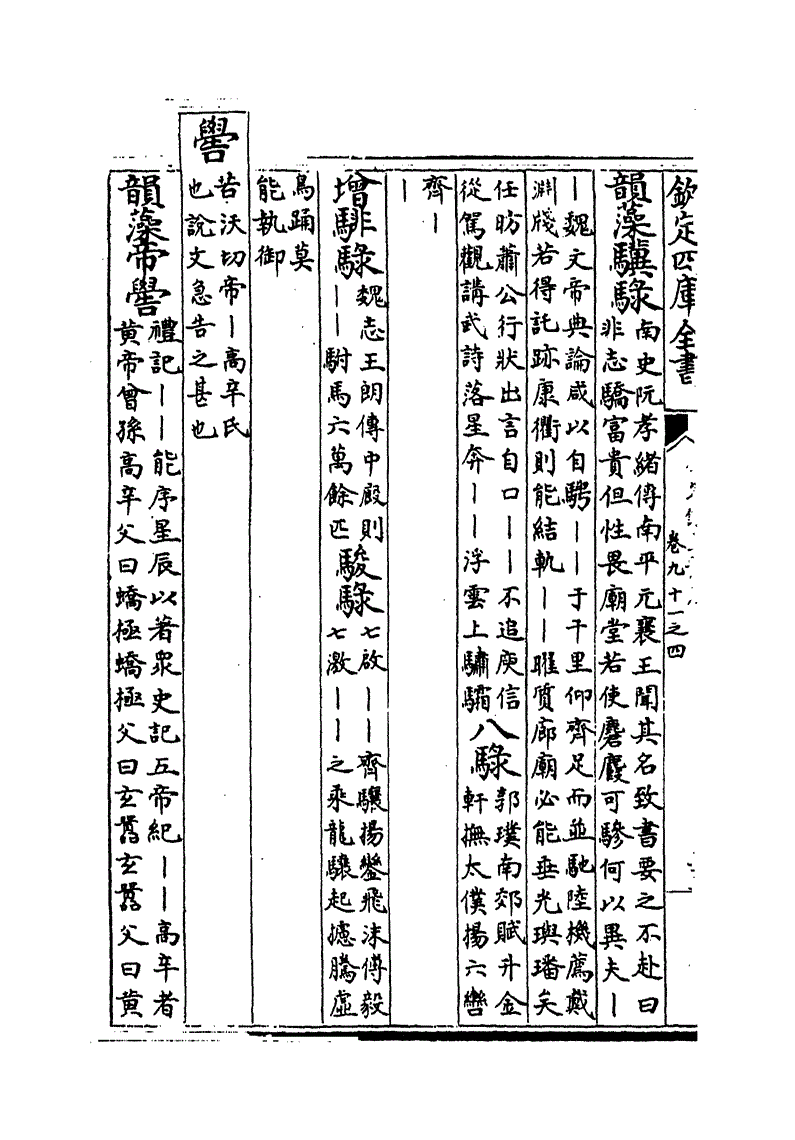 欽定四庫全書
卷九十一之四
韻藻驥騄
南史阮孝緒傳南平元襄王聞其名致書要之不赴曰
非志驕富貴但性畏廟堂若使麏麚可驂何以異夫｜
｜魏文帝典論咸以自騁｜｜于千里仰齊足而並馳陸機薦戴
淵牋若得託跡康衢則能結軌｜｜耀質廊廟必能垂光璵璠矣
任昉蕭公行狀出言自口｜｜不追庾信
從駕觀講武詩落星奔｜｜浮雲上驌驦
八騄
郭璞南郊賦升金
軒撫太僕揚六轡
齊｜
｜
增騑騄
魏志王朗傳中廄則
｜｜駙馬六萬餘匹
駿騄
七啟｜｜齊驤揚鑾飛沫傅毅
七激｜｜之乘龍驤起攄騰虛
鳥踊莫
能執御
嚳
苦沃切帝｜高辛氏
也說文急告之甚也
韻藻帝嚳
禮記｜｜能序星辰以著眾史記五帝紀｜｜高辛者
黃帝曾孫高辛父曰蟜極蟜極父曰玄囂玄囂父曰黃